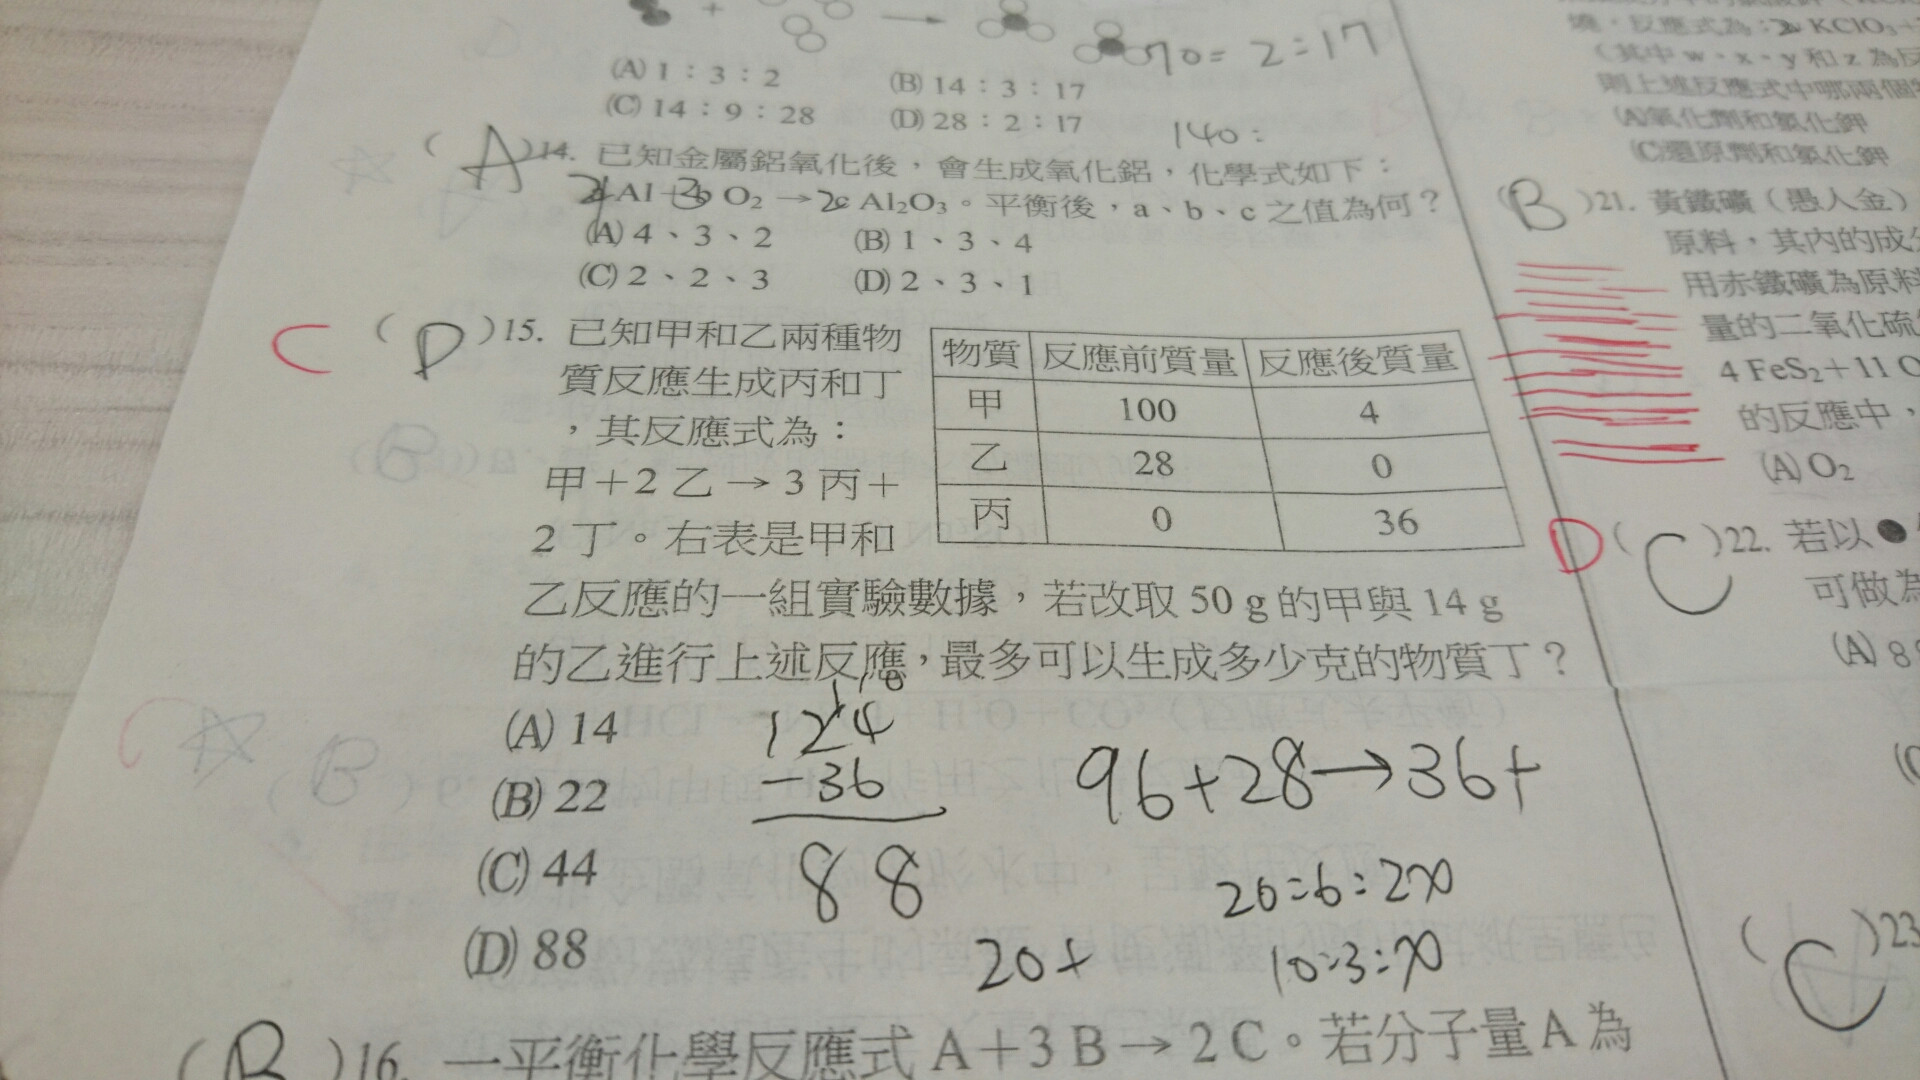 + →
70=2:17
(A) 1：3：2 (B) 14：3：17
(C) 14：9：28 (D) 28：2：17
140:
(A)14. 已知金屬鋁氧化後，會生成氧化鋁，化學式如下：
Al＋ O₂→ Al₂O₃。平衡後，a、b、c 之值為何？
(A) 4、3、2 (B) 1、3、4
(C) 2、2、3 (D) 2、3、1
C (D)15. 已知甲和乙兩種物
質反應生成丙和丁
，其反應式為：
甲＋2 乙→3 丙＋
2 丁。右表是甲和
物質 反應前質量 反應後質量
甲 100 4
乙 28 0
丙 0 36
乙反應的一組實驗數據，若改取 50 g 的甲與 14 g
的乙進行上述反應，最多可以生成多少克的物質丁？
(A) 14
(B) 22
(C) 44
(D) 88
124
−36
88
96+28→36+
20:6:2x
20+ 10:3:x
(B)16. 一平衡化學反應式 A＋3 B→2 C。若分子量A為
境，反應式為：2 KClO₃
（其中 w、x、y 和 z 為反
則上述反應式中哪兩個
(A)氧化劑和氯化鉀
(C)還原劑和氯化鉀
(B)21. 黃鐵礦（愚人金）
原料，其內的成分
用赤鐵礦為原料
量的二氧化硫
4 FeS₂＋11 O
的反應中，
(A) O₂
D (C)22. 若以●
可做為
(A) 8
(C
(C)23